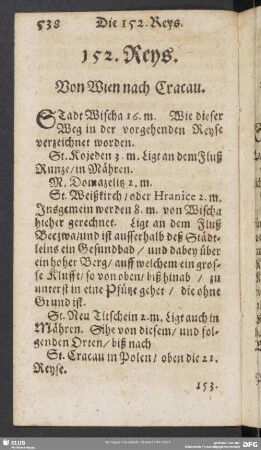 538 Die 152. Reys.
152. Reys.
Von Wien nach Cracau.
STadt Wischa 16. m. Wie dieser
Weg in der vorgehenden Reyse
verzeichnet worden.
St. Kojeden 3. m. Ligt an dem Fluß
Runze/ in Mähren.
M. Domazelitz 2. m.
St. Weißkirch/ oder Hranice 2. m.
Insgemein werden 8. m. von Wischa
hieher gerechnet. Ligt an dem Fluß
Beczwa/ und ist ausserhalb deß Städt-
leins ein Gesundbad/ und dabey über
ein hoher Berg/ auff welchem ein gros-
se Klufft/ so von oben/ biß hinab/ zu
unterst in eine Pfütze gehet/ die ohne
Grund ist.
St. Neu Titschein 2. m. Ligt auch in
Mähren. Sihe von diesem/ und fol-
genden Orten/ biß nach
St. Cracau in Polen/ oben die 21.
Reyse.
153.
SLUB
DFG